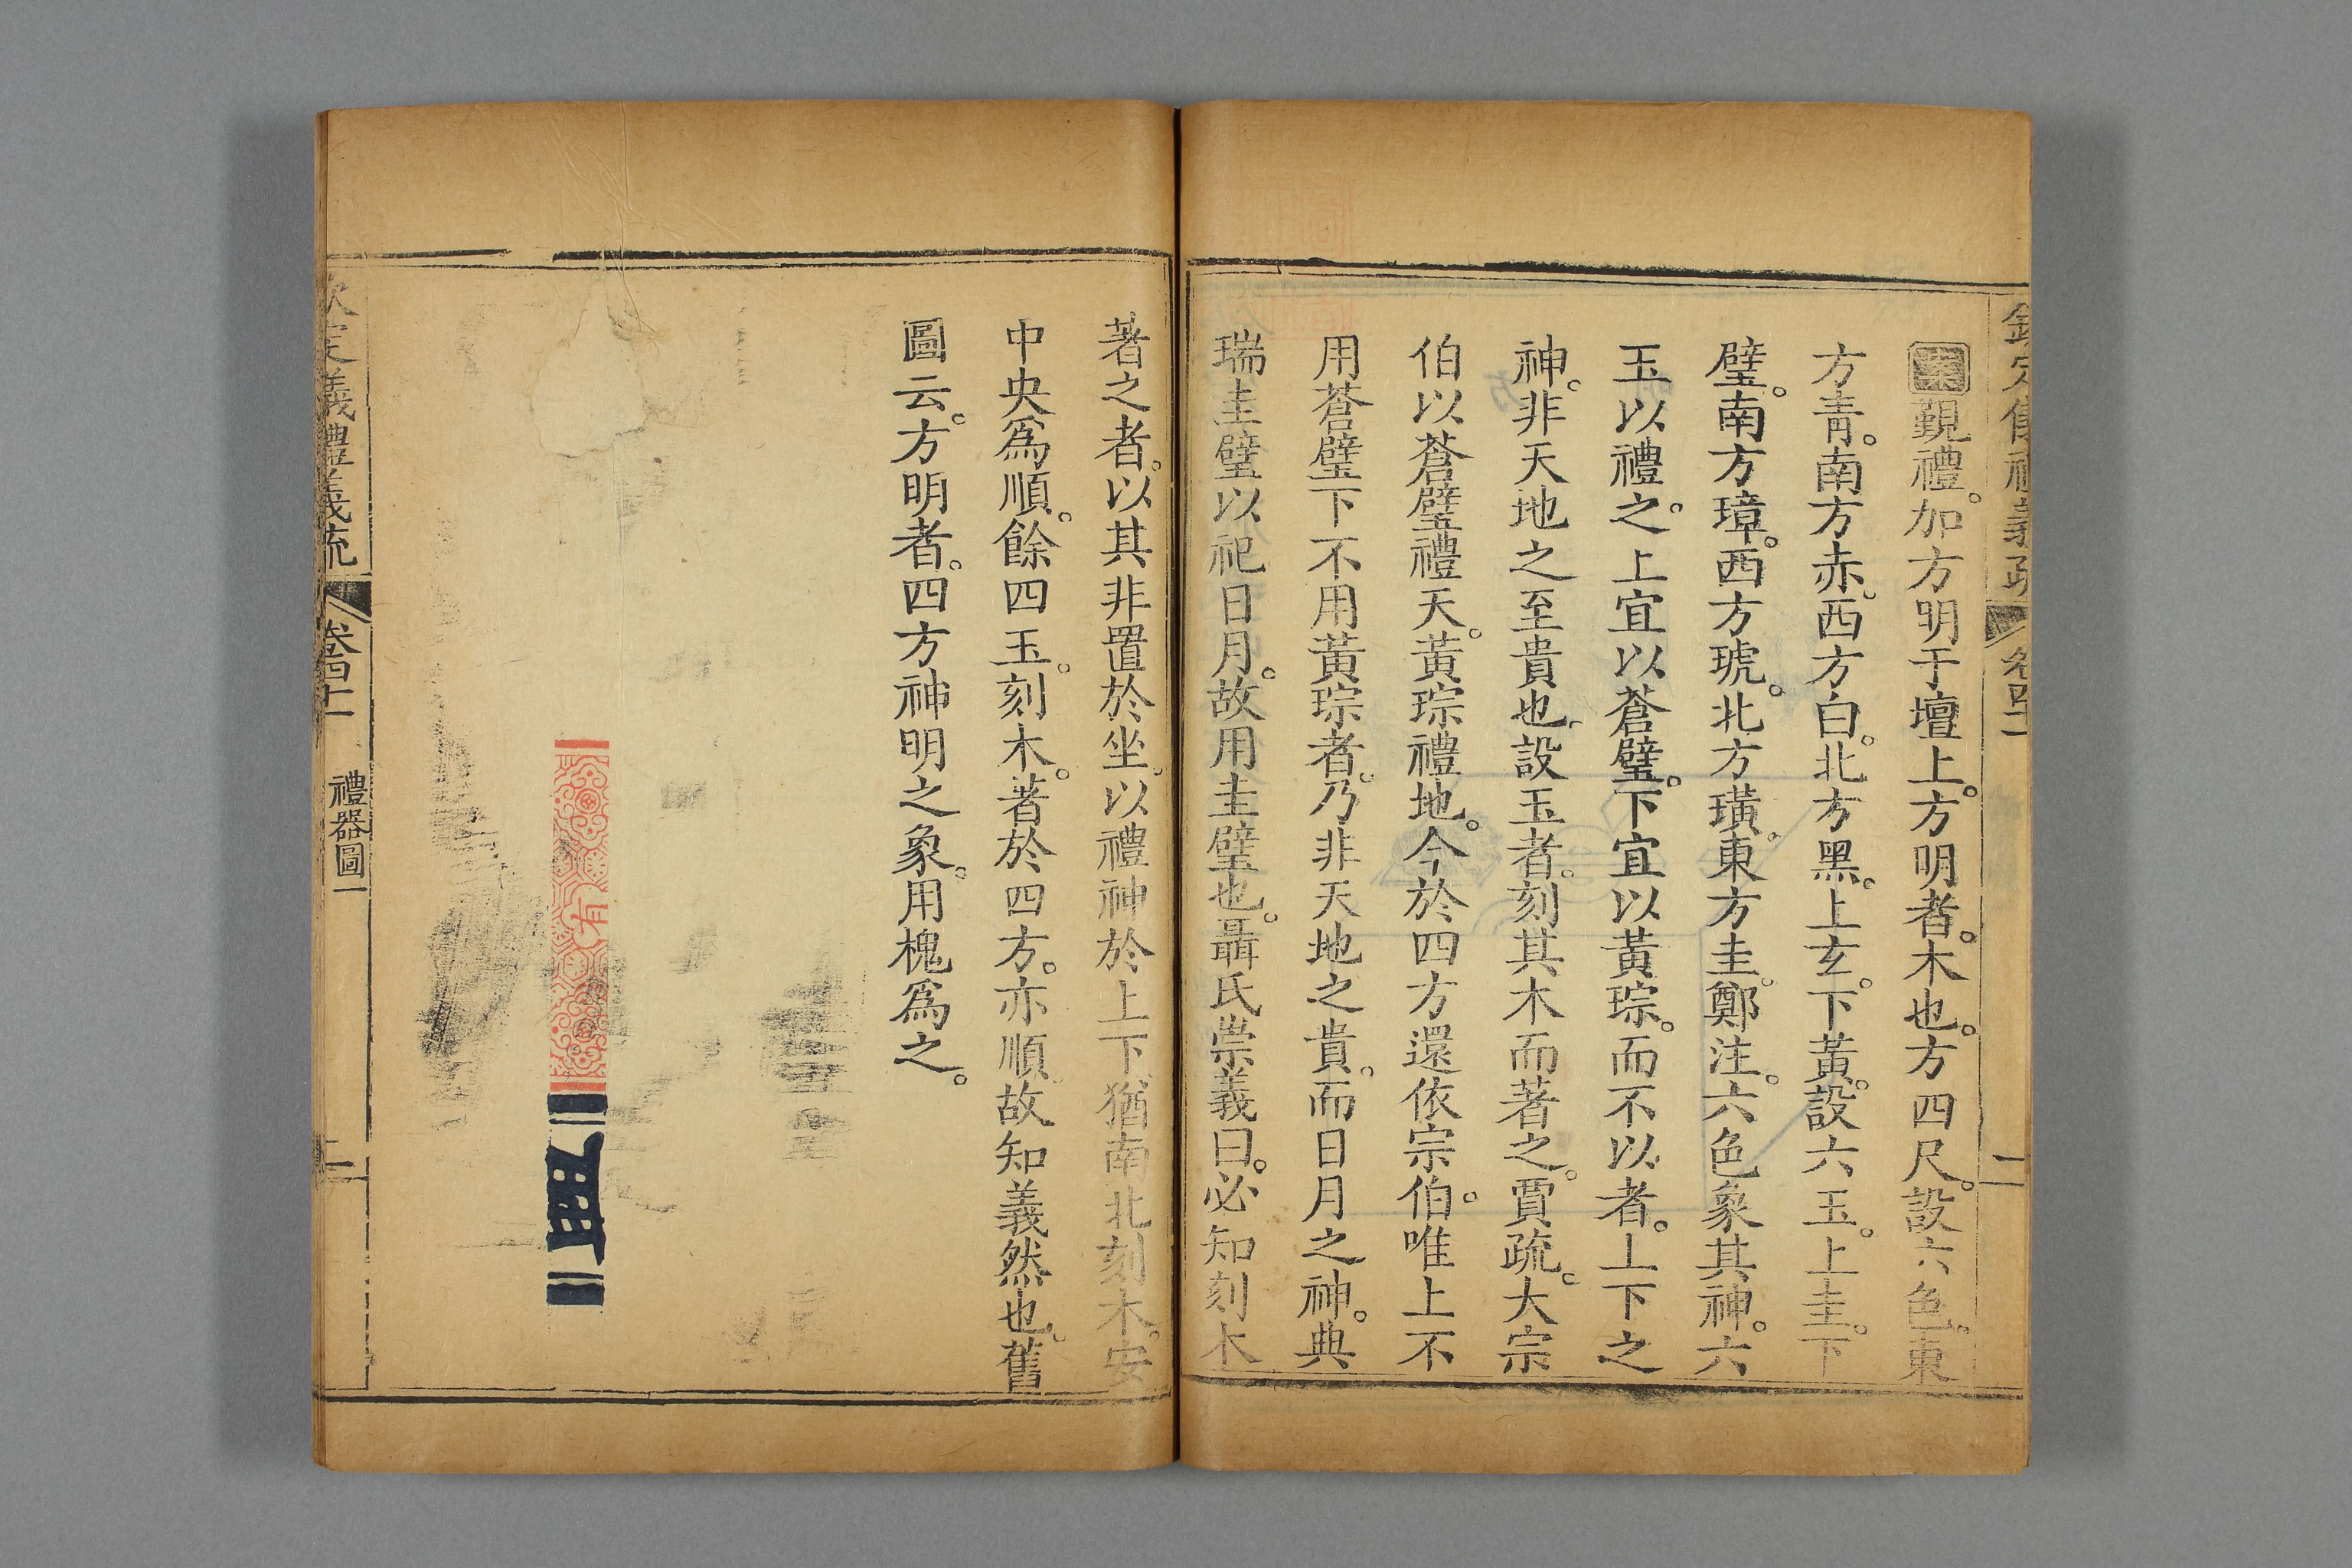 欽定儀禮義疏 卷四十一
案覲禮。加方明于壇上。方明者。木也。方四尺。設六色。東
方青。南方赤。西方白。北方黑。上玄。下黃。設六玉。上圭。下
璧。南方璋。西方琥。北方璜。東方圭。鄭注。六色象其神。六
玉以禮之。上宜以蒼璧。下宜以黃琮。而不以者。上下之
神。非天地之至貴也。設玉者。刻其木而著之。賈疏。大宗
伯以蒼璧禮天。黃琮禮地。今於四方還依宗伯。唯上不
用蒼璧下不用黃琮者。乃非天地之貴。而日月之神。典
瑞圭璧以祀日月。故用圭璧也。聶氏崇義曰。必知刻木
著之者。以其非置於坐。以禮神於上下猶南北刻木。安
中央爲順。餘四玉。刻木。著於四方。亦順故知義然也。舊
圖云。方明者。四方神明之象。用槐爲之。
有
欽定義禮義疏 卷四十一 禮器圖一